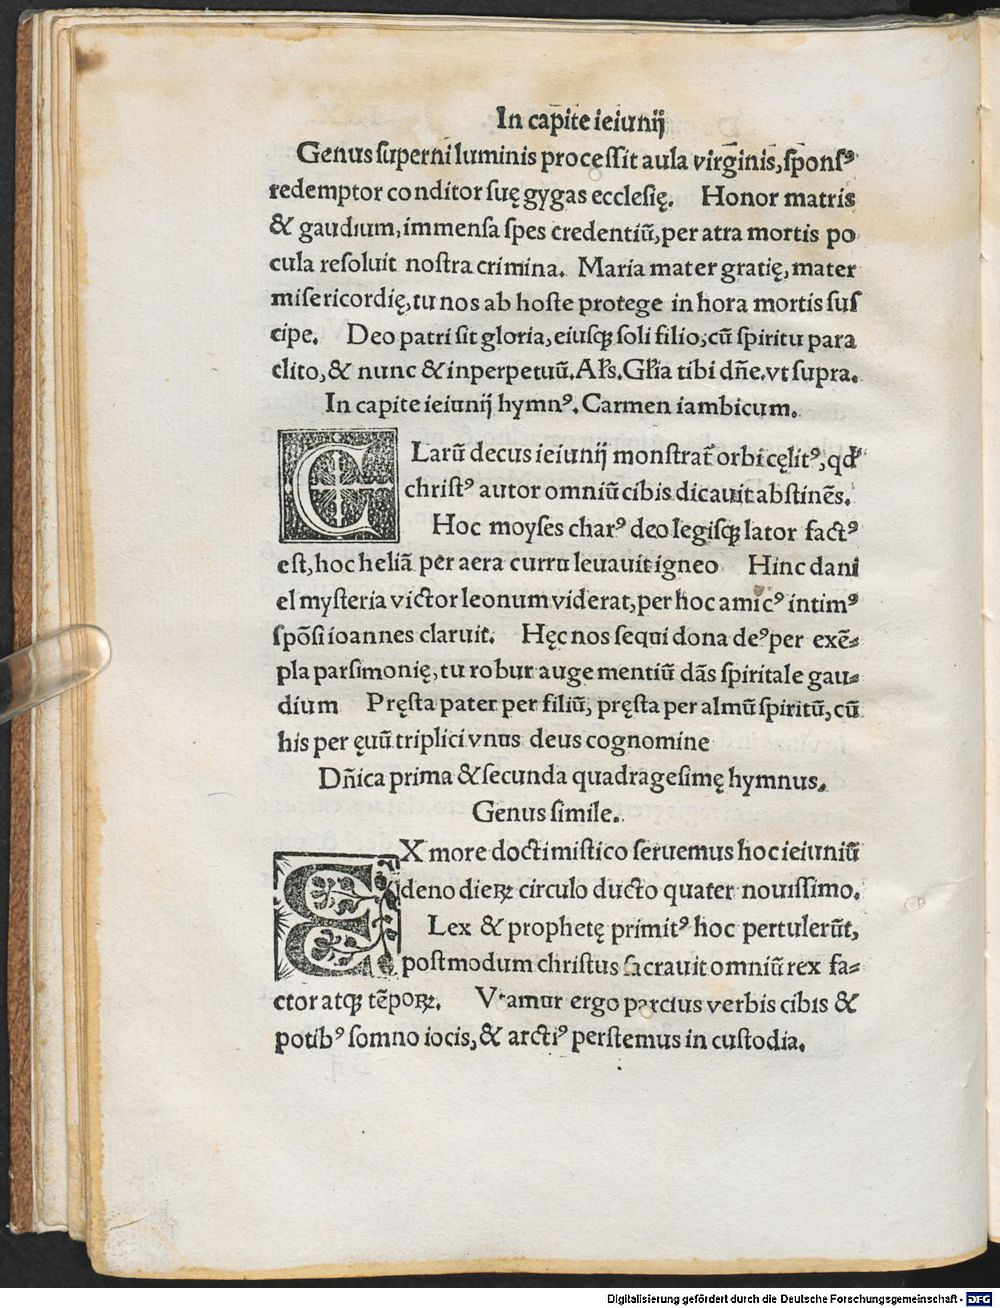 In capite ieiunij
Genus superni luminis processit aula virginis, sponsꝰ
redemptor conditor suę gygas ecclesię. Honor matris
& gaudium, immensa spes credentiū, per atra mortis po
cula resoluit nostra crimina. Maria mater gratię, mater
misericordię, tu nos ab hoste protege in hora mortis sus
cipe. Deo patri sit gloria, eiusqꝫ soli filio, cū spiritu para
clito, & nunc & inperpetuū. Gl̄ia tibi dn̄e. vt supra.
In capite ieiunij hymnꝰ. Carmen iambicum.
CLarū decus ieiunij monstrat᷑ orbi cęlitꝰ, qd̕
christꝰ autor omniū cibis dicauit abstinēs.
Hoc moyses charꝰ deo legisqꝫ lator factꝰ
est, hoc heliā per aera curru leuauit igneo Hinc dani
el mysteria victor leonum viderat, per hoc amicꝰ intimꝰ
spōsi ioannes claruit. Hęc nos sequi dona deꝰ per exē⸗
pla parsimonię, tu robur auge mentiū dās spiritale gau⸗
dium Pręsta pater per filiū, pręsta per almū spiritū, cū
his per ęuū triplici vnus deus cognomine
Dn̄ica prima & secunda quadragesimę hymnus.
Genus simile.
EX more docti mistico seruemus hoc ieiuniū
deno dieꝝ circulo ducto quater nouissimo.
Lex & prophetę primitꝰ hoc pertulerūt,
postmodum christus sacrauit omniū rex fa⸗
ctor atqꝫ tēpoꝝ. Vtamur ergo parcius verbis cibis &
potibꝰ somno iocis, & arctiꝰ perstemus in custodia.
Digitalisierung gefördert durch die Deutsche Forschungsgemeinschaft - DFG